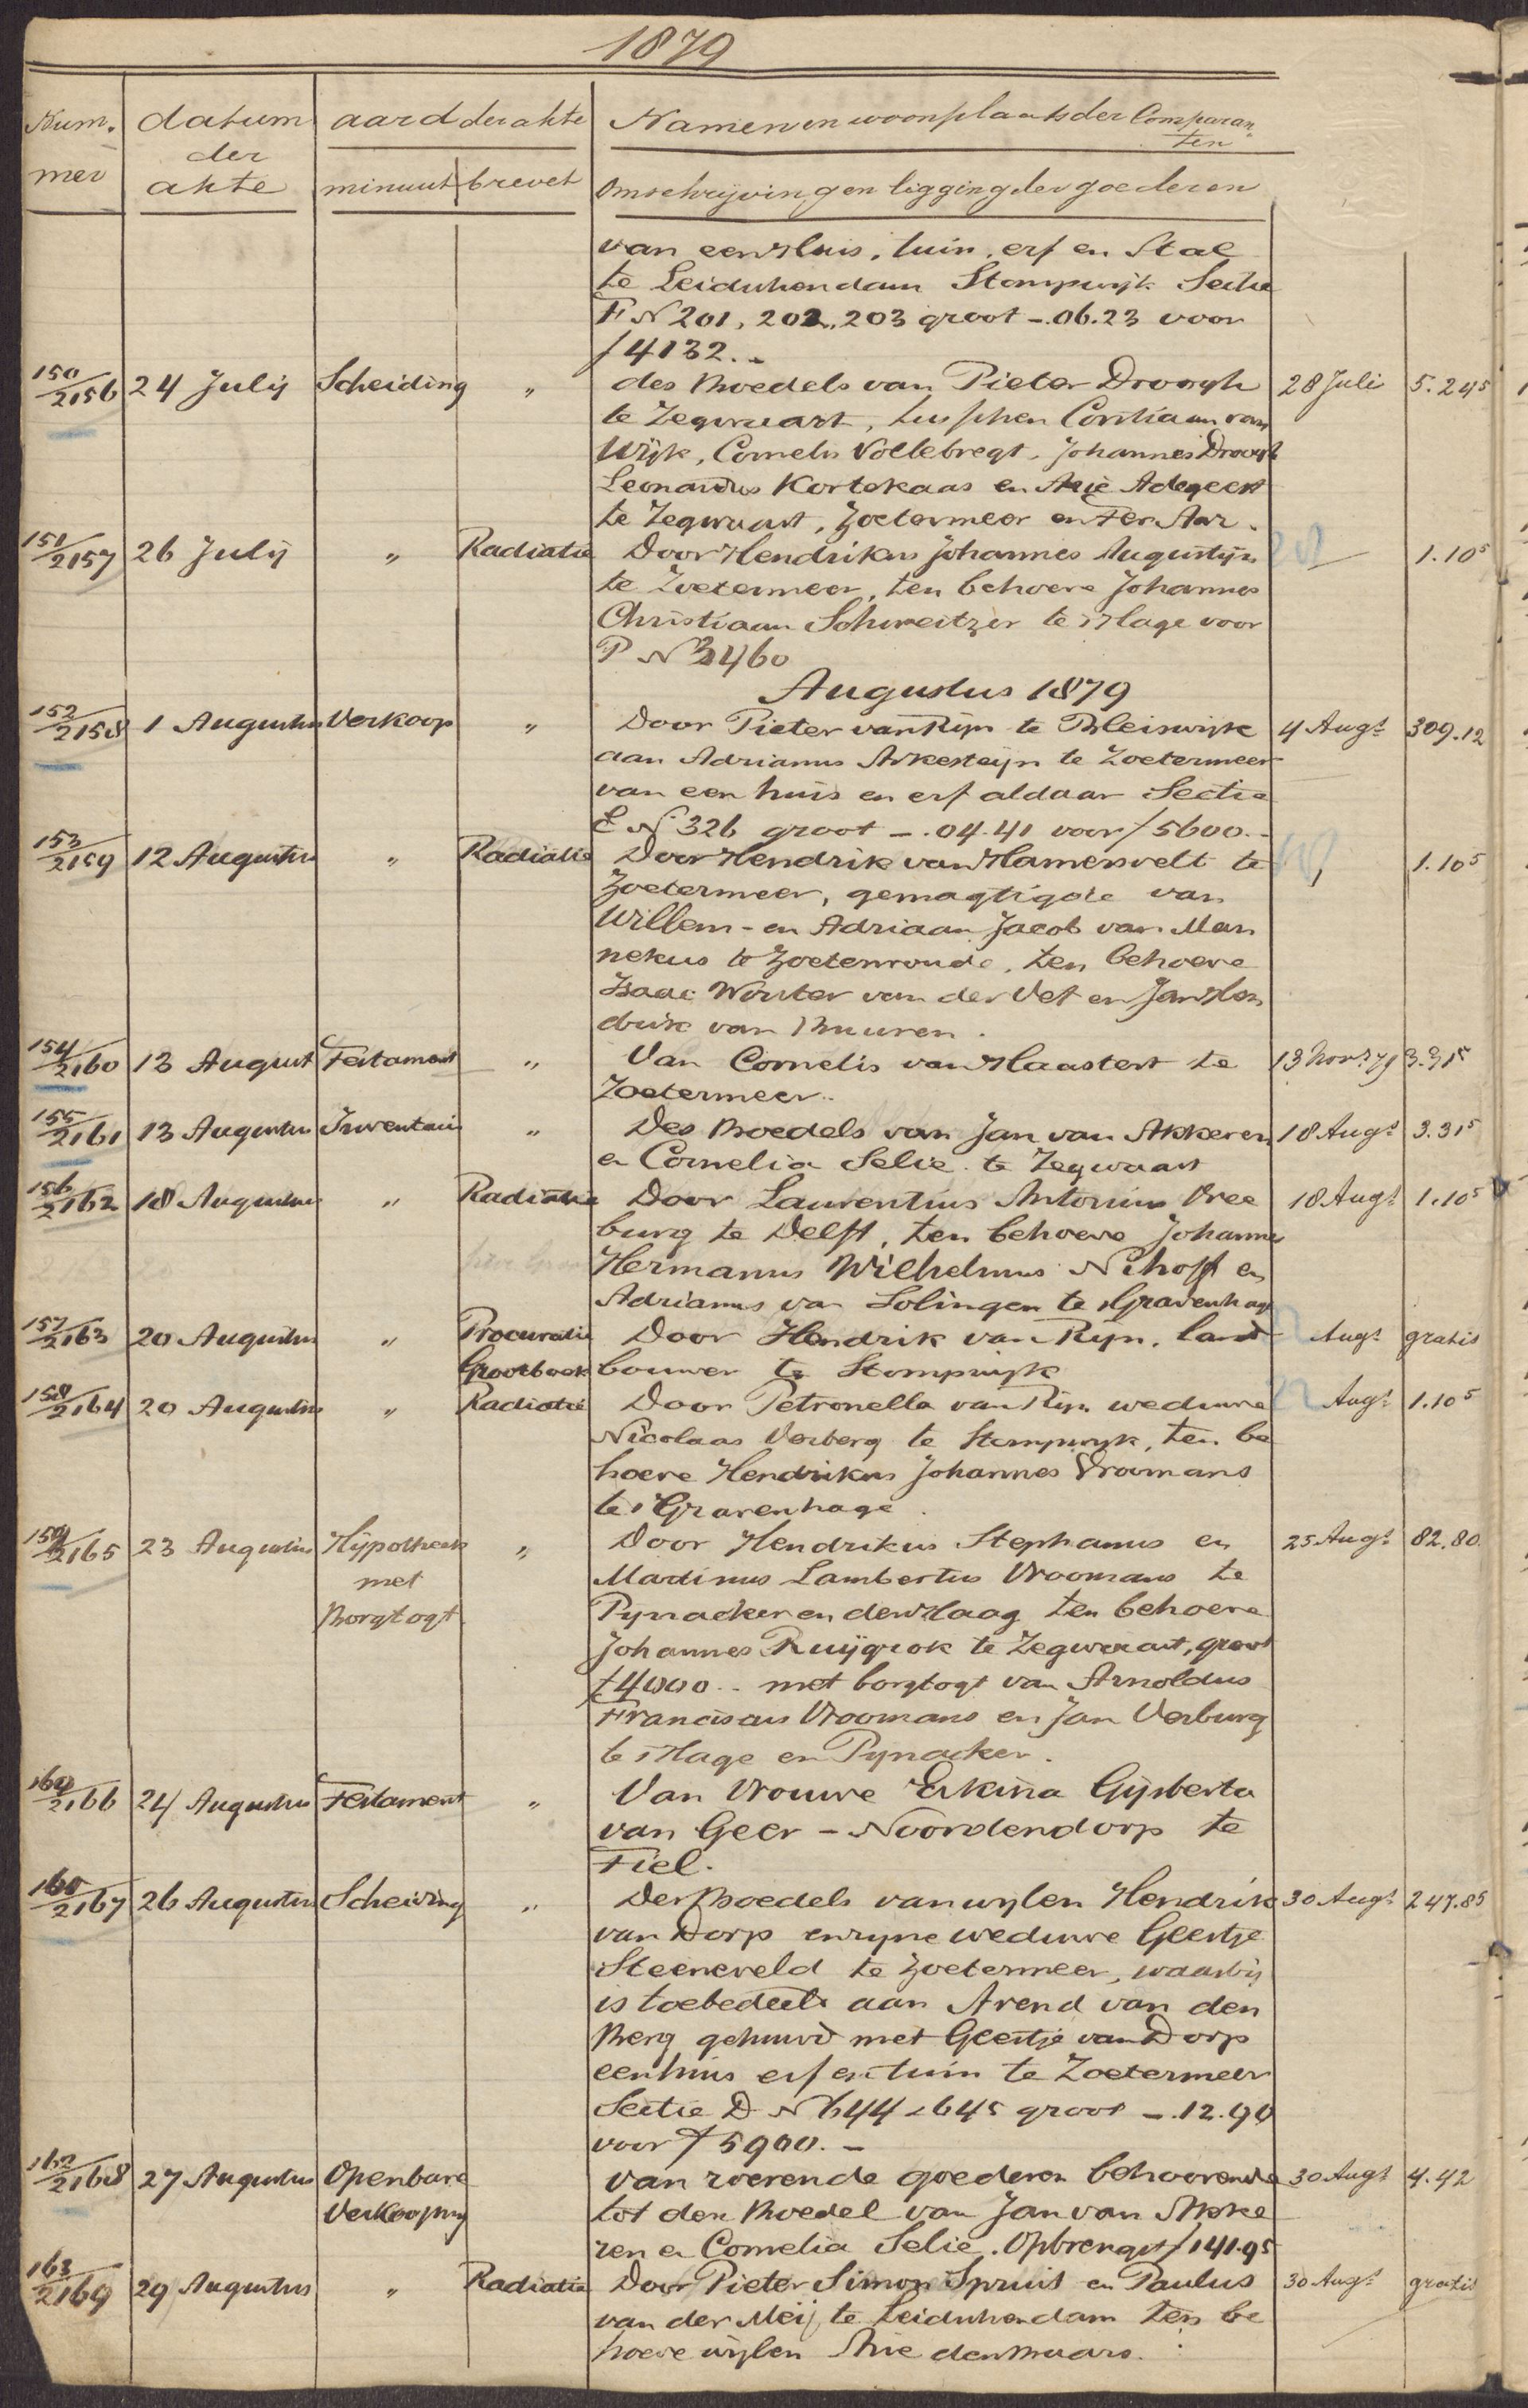 1879
Num. datum aard der akte Namen en woonplaats der Comparan
der ten
mer akte minuut brevet omschrijving en ligging der goederen
van een Huis, tuin, erf en Stal
te Leidschendam Stompwijk Sectie
F N 201, 202, 203 groot -.06.23 voor
f 4132.-
150/2156 24 July Scheiding " des Boedels van Pieter Droogh 28 Juli 5.24⁵
te Zegwaart, tusschen Corstiaan van
Wijk, Cornelis Vollebregt, Johannes Droogh
Leonardus Kortekaas en Arie Adegeest
te Zegwaart, Zoetermeer en Ter Aar.
151/2157 26 July " Radiatie Door Hendrikus Johannes Augustijn 28 1.10⁵
te Zoetermeer, ten behoeve Johannes
Christiaan Schweitzer te 's Hage voor
P N 3460
Augustus 1879
152/2158 1 Augustus Verkoop " Door Pieter van Rijn te Bleiswijk 4 Augt 309.12
aan Adrianus Arkesteijn te Zoetermeer
van een huis en erf aldaar Sectie
E N 326 groot -.04.41 voor f 5600.-
153/2159 12 Augustus " Radiatie Door Hendrik van Hamersvelt te 1.10⁵
Zoetermeer, gemagtigde van
Willem- en Adriaan Jacob van Man
nekus te Zoeterwoude, ten behoeve
Izaac Wouter van der Vet en Jan Hen
drik van Buuren.
154/2160 13 August Testament " Van Cornelis van Haastert te 13 Novr 79 3.31⁵
Zoetermeer.
155/2161 13 Augustus Inventaris " Des Boedels van Jan van Akkeren 18 Augt 3.31⁵
en Cornelia Selie te Zegwaart
156/2162 18 Augustus " Radiatie Door Laurentius Antonius Vree 18 Augt 1.10⁵
burg te Delft, ten behoeve Johannes
Hermanus Wilhelmus Nihoff en
Adrianus van Solingen te 's Gravenhage
157/2163 20 Augustus " Procuratie Door Hendrik van Rijn, land Augt gratis
Grootboek bouwer te Stompwijk
158/2164 20 Augustus " Radiatie Door Petronella van Rijn weduwe 22 Augt 1.10⁵
Nicolaas Verberg te Stompwijk, ten be
hoeve Hendrikus Johannes Vroomans
te 's Gravenhage.
159/2165 23 Augustus Hypotheek " Door Hendrikus Stephanus en 25 Augt 82.80
met Martinus Lambertus Vroomans te
Borgtogt Pynacker en den Haag ten behoeve
Johannes Ruijgrok te Zegwaart, groot
f 4000.- met borgtogt van Arnoldus
Franciscus Vroomans en Jan Verburg
te 's Hage en Pynacker.
160/2166 24 Augustus Testament " Van Vrouwe Erkina Gijsberta
van Geer - Noordendorp te
Tiel.
161/2167 26 Augustus Scheiding " Des Boedels van wylen Hendrik 30 Augt 247.85
van Dorp en zyne weduwe Geertje
Steeneveld te Zoetermeer, waarbij
is toebedeeld aan Arend van den
Berg gehuwd met Geertje van Dorp
een huis erf en tuin te Zoetermeer
Sectie D N 644 & 645 groot -.12.90
voor f 5900.-
162/2168 27 Augustus Openbare van roerende goederen behoorende 30 Augt 4.42
Verkooping tot den Boedel van Jan van Akke
ren en Cornelia Selie. Opbrengst f 141.95
163/2169 29 Augustus " Radiatie Door Pieter Simon Spruit en Paulus 30 Augt gratis
van der Meij te Leidschendam ten be
hoeve wijlen Arie den Braars.